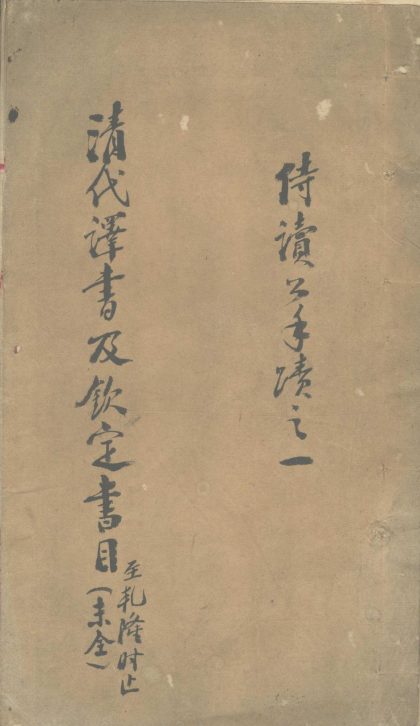 侍讀公手蹟之一
清代譯書及欽定書目
至乾隆时止
（未全）